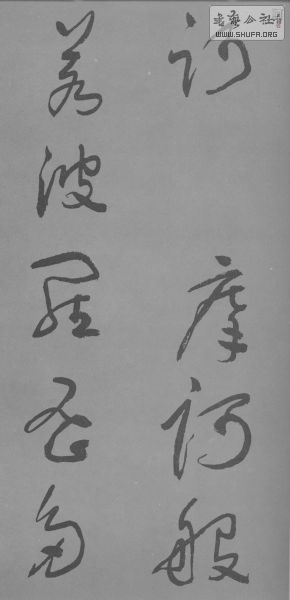 訶　摩訶般
若波羅蜜多
書藝公社
WWW.SHUFA.ORG